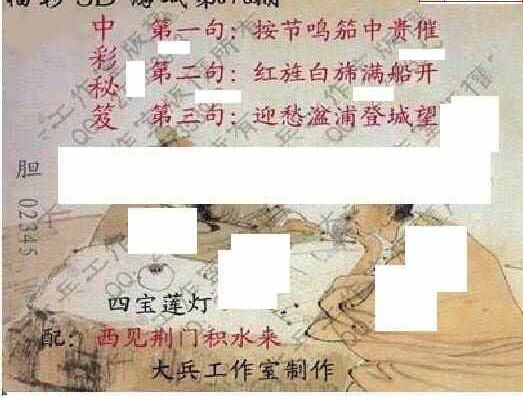 中彩秘笈
第一句：按节鸣笳中贵催
第二句：红旌白旆满船开
第三句：迎愁湓浦登城望
胆 02345
四宝莲灯
配：西见荆门积水来
大兵工作室制作